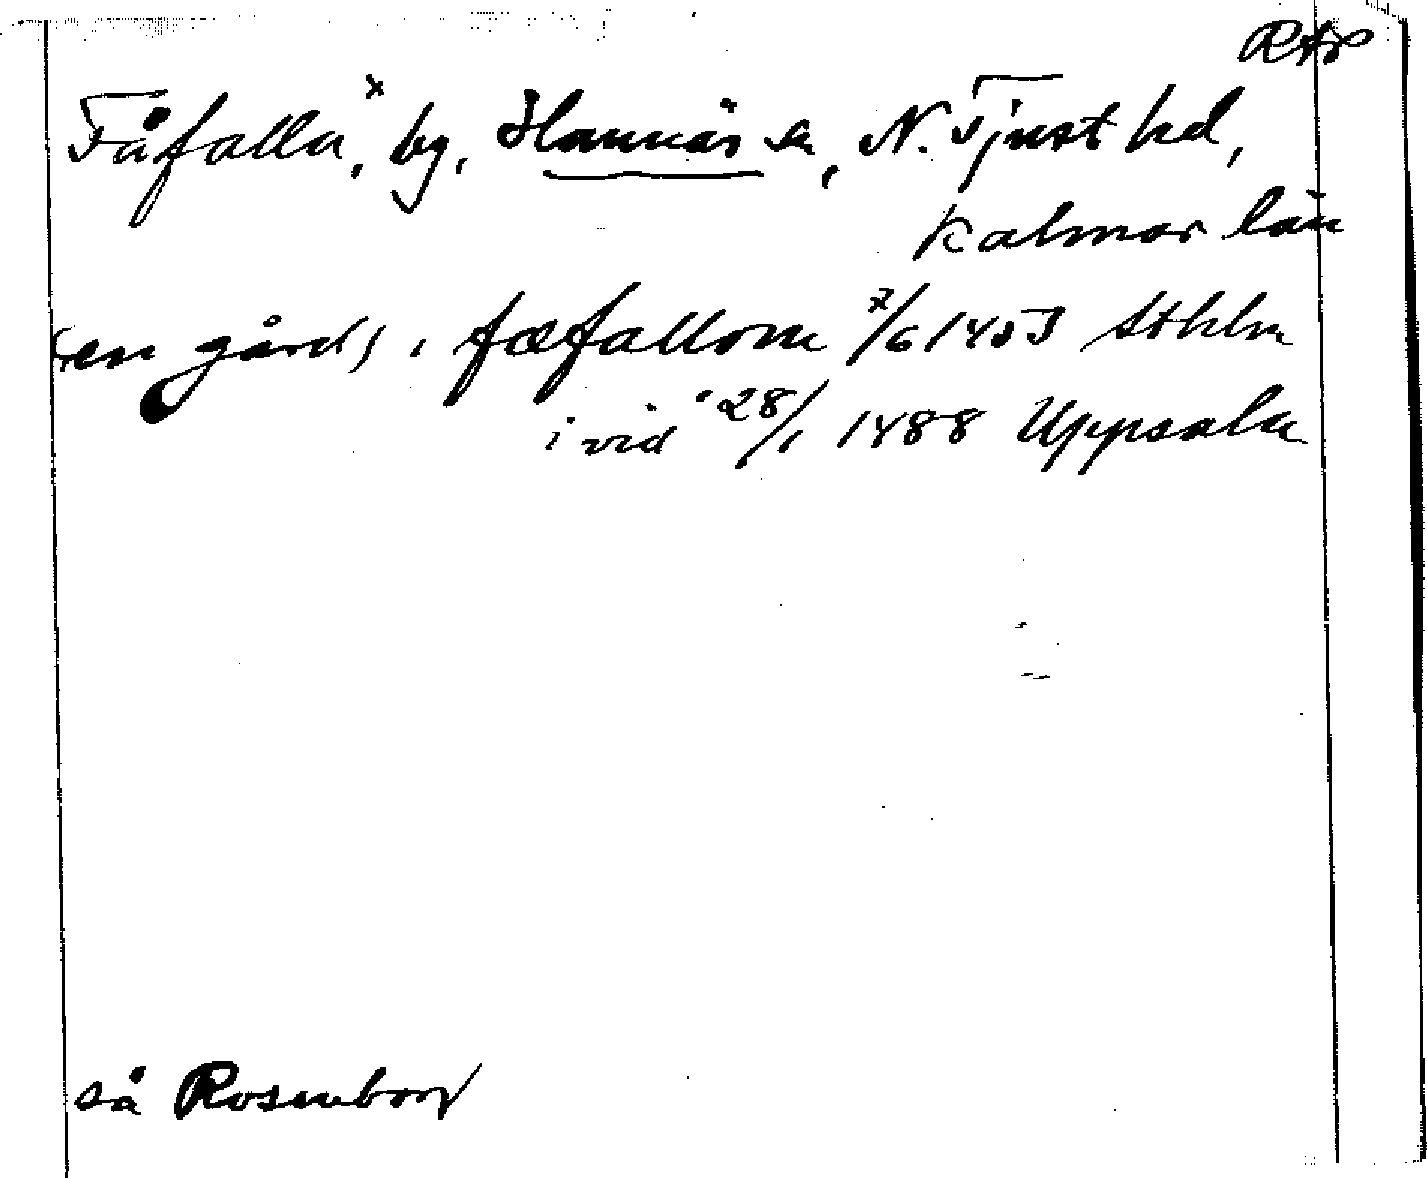 RAp
Fåfalla,ˣ by, Hannäs sn, N. Tjust hd,
Kalmar län
(en gård) i fæfallom 7/6 1453 Sthlm
i vid 28/1 1488 Uppsala
så Rosenborg